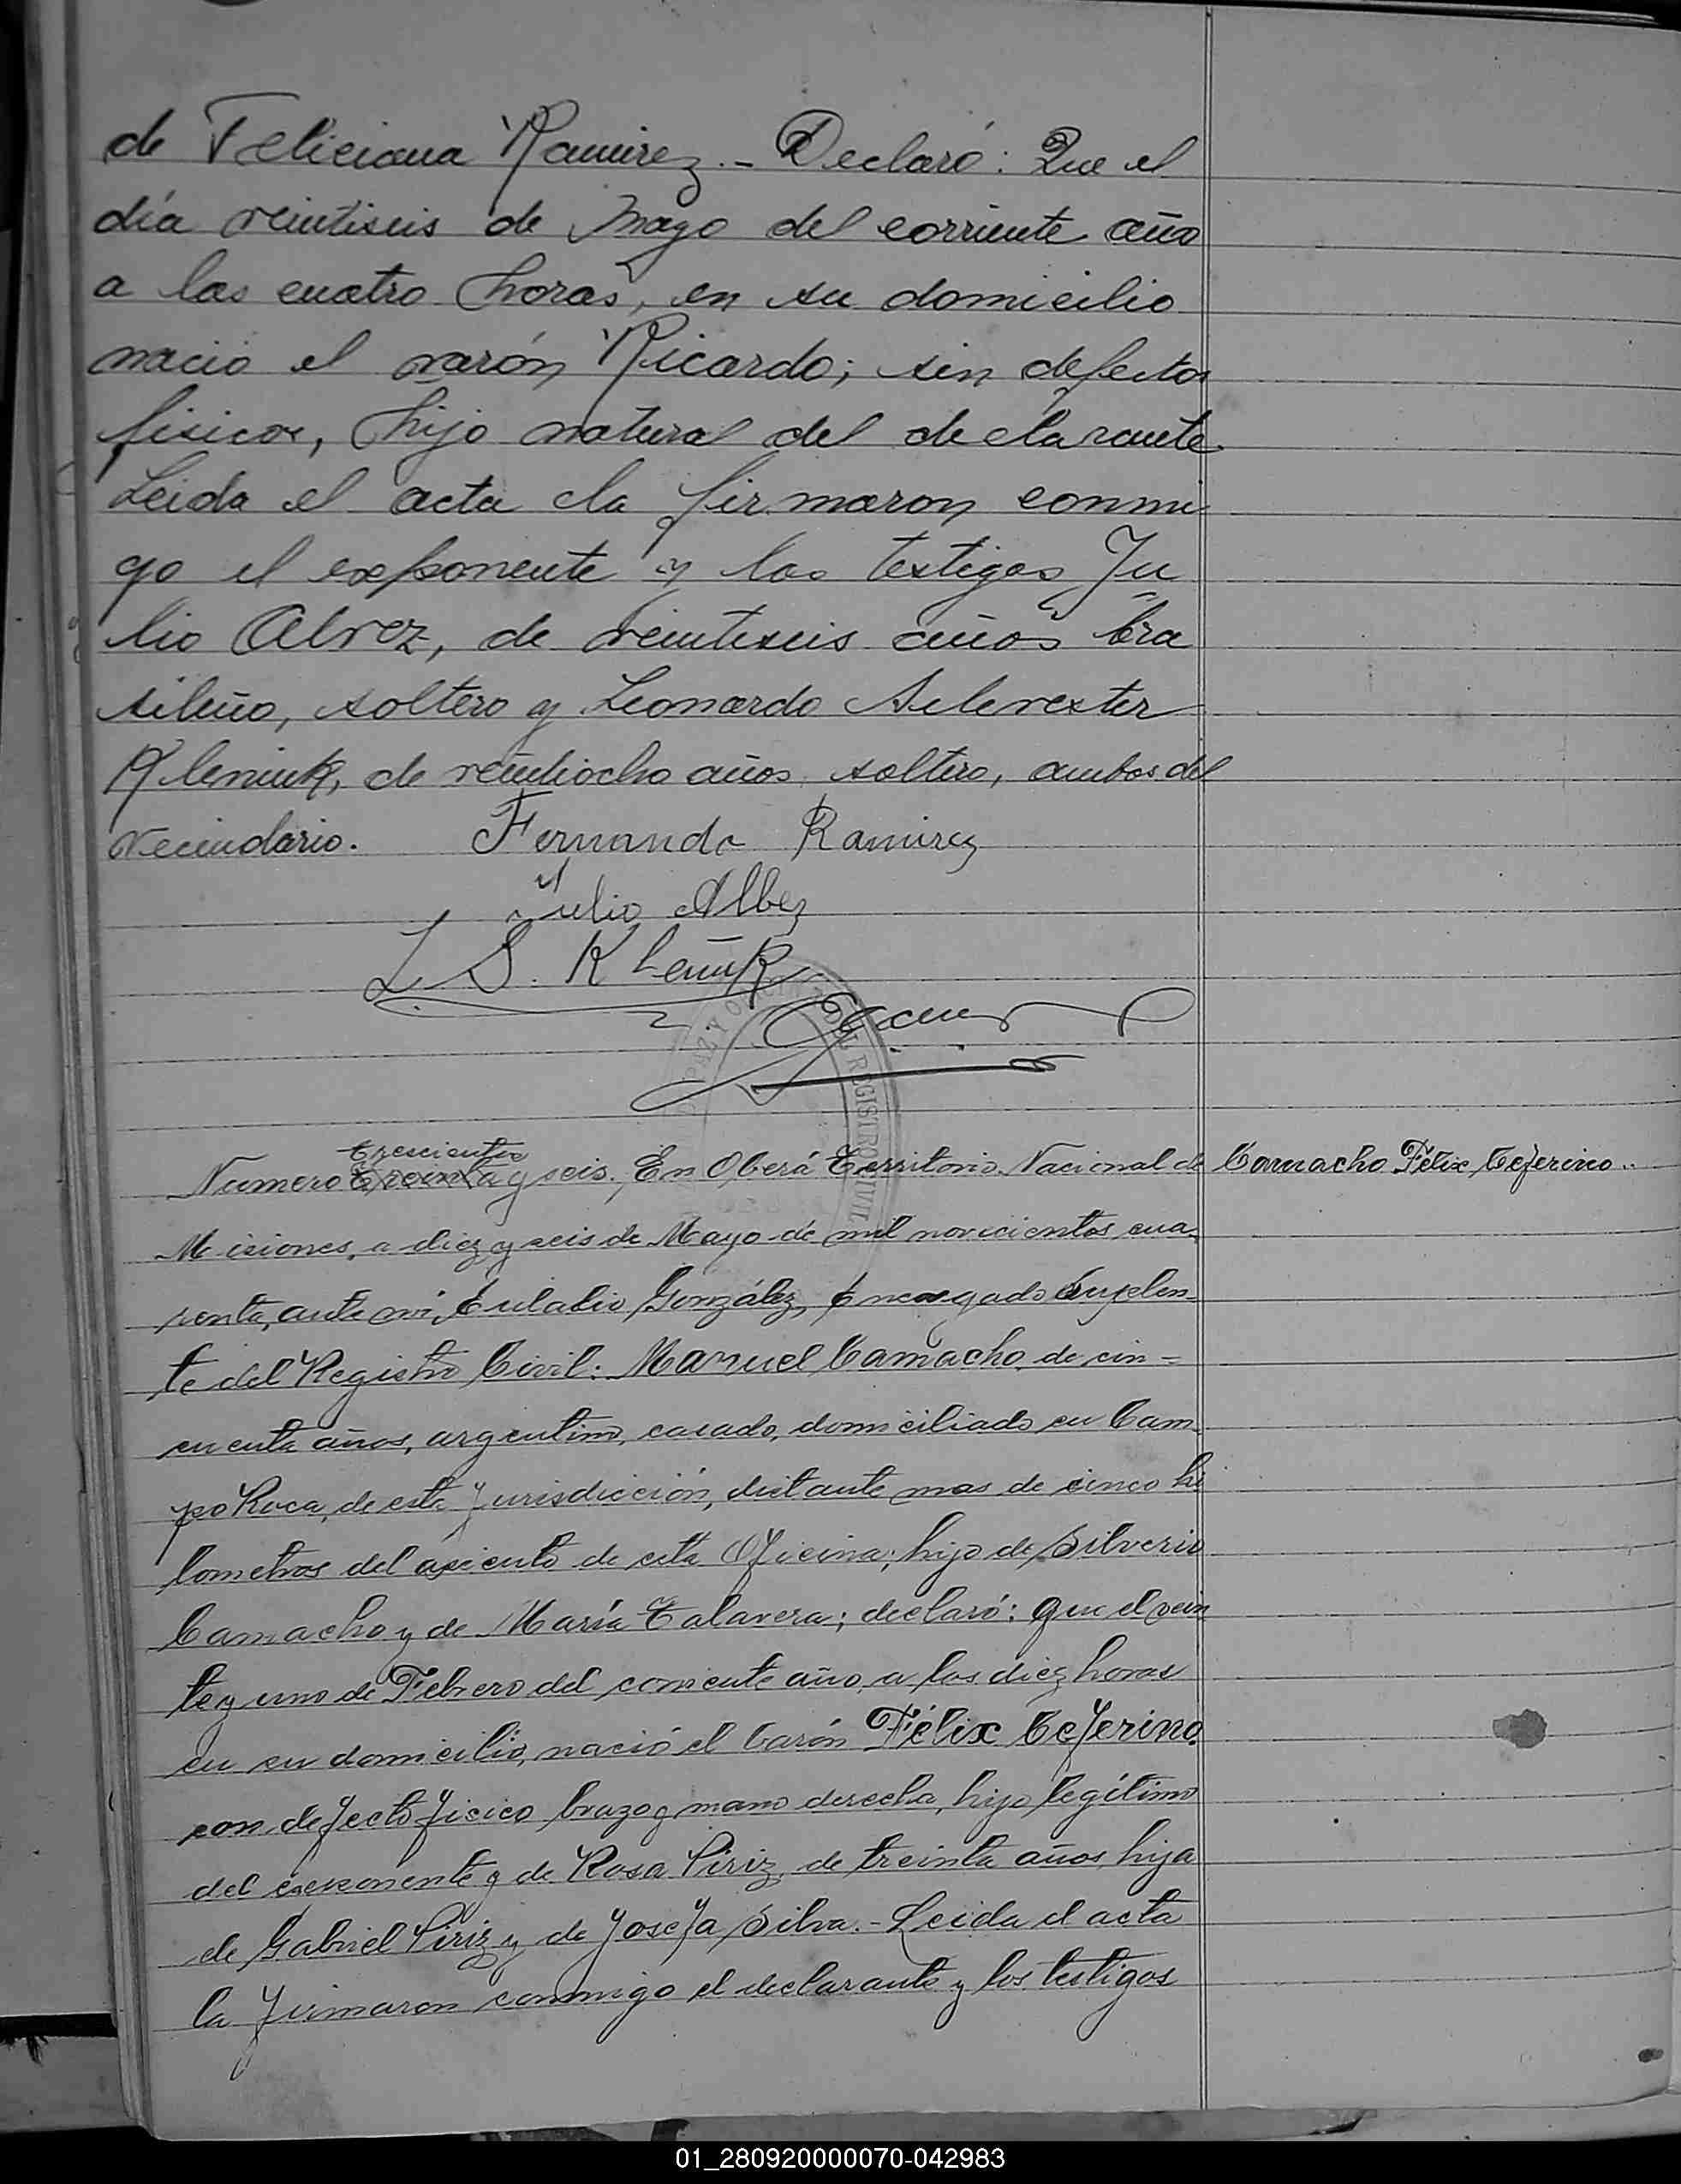 de Feliciana Ramirez.- Declaró: Que el
día veintiseis de Mayo del corriente año
a las cuatro horas, en su domicilio
nació el varón Ricardo; sin defectos
fisicos, hijo natural del declarante
Leida el acta la firmaron conmi
go el exponente y los testigos Ju
lio Alvez, de veintiseis años bra
sileño, soltero y Leonardo Silvester
Kleniuk, de veintiocho años, soltero, ambos del
vecindario. Fernando Ramirez
Julio Albez
L. S. Kleñuk
REGISTRO CIVIL
trescientos
Numero treinta y seis. En Oberá Territorio Nacional de
Camacho Félix Ceferino..
Misiones, a diez y seis de Mayo de mil novecientos cua-
renta, ante mí, Eulalio González, Encargado Suplen-
te del Registro Civil: Manuel Camacho, de cin-
cuenta años, argentino, casado, domiciliado en Cam-
po Roca, de esta Jurisdicción, distante mas de cinco ki
lometros del asiento de esta Oficina; hijo de Silverio
Camacho y de María Talavera; declaró: Que el vein
te y uno de Febrero del corriente año, a las diez horas
en su domicilio, nació el barón Félix Ceferino.
con defecto fisico brazo y mano derecha, hijo legítimo
del exponente y de Rosa Piriz, de treinta años, hija
de Gabriel Piriz y de Josefa Silva.- Leida el acta
la firmaron conmigo el declarante y los testigos
01_280920000070-042983